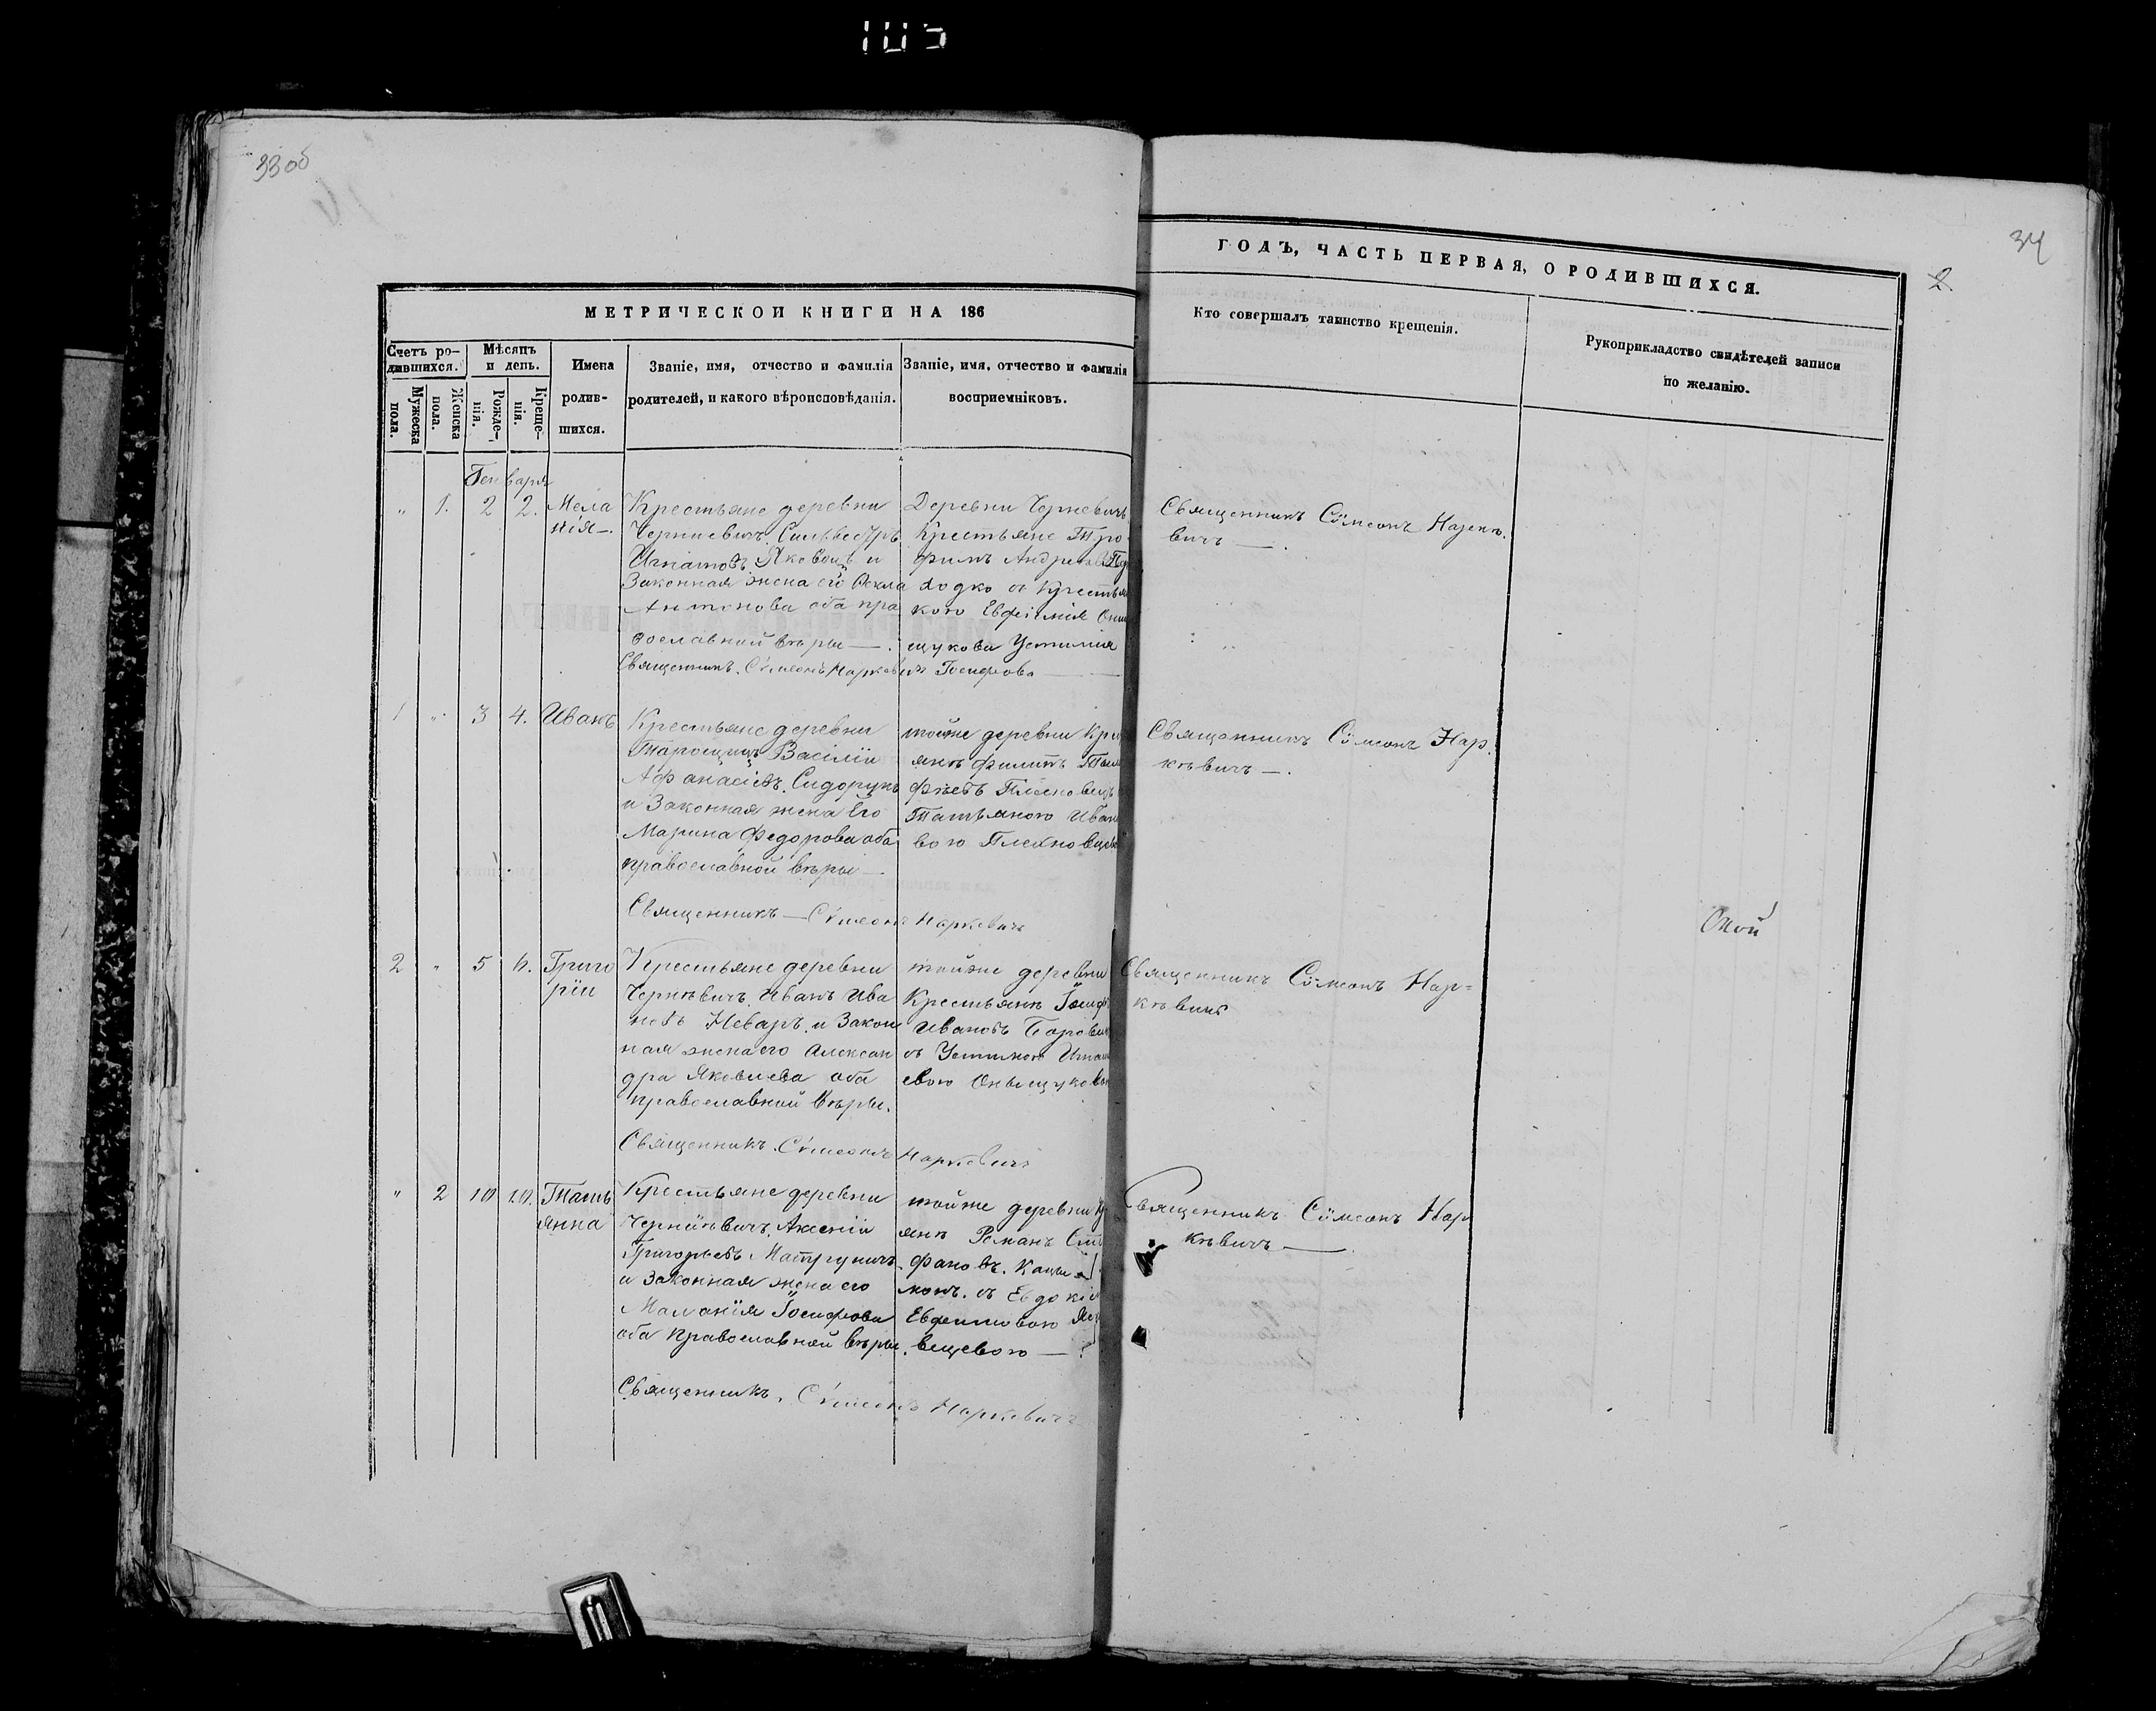 105
33 об
34
2.
МЕТРИЧЕСКОЙ КНИГИ НА 186
ГОДЪ, ЧАСТЬ ПЕРВАЯ, О РОДИВШИХСЯ.
Счетъ ро-
дившихся.
Мужеска
пола.
Женска
пола.
Мѣсяцъ
и день.
Рожде-
нія.
Креще-
нія.
Имена
родив-
шихся.
Званіе, имя, отчество и фамилія
родителей, и какого вѣроисповѣданія.
Званіе, имя, отчество и фамилія
воспріемніковъ.
Кто совершалъ таинство крещенія.
Рукоприкладство свидѣтелей записи
по желанію.
Генваря
" 1. 2 2.
Мела
нія —.
Крестьяне деревни
Черневичъ. Сильвестръ
Игнатовъ Яковецъ и
Законная жена его Фекла
Антонова оба пра
вославной вѣры — .
Священникъ. Сѵмеонъ Наркевичъ
Деревни Черневичъ
Крестьяне Тро
фимъ Андреевъ
ходко съ Крестьян
кою Евфимія Они
щукова Устинія
Іосифова —
Священникъ Сѵмеонъ Нарке
вичъ — .
1 " 3 4.
Иванъ
Крестьяне деревни
Тарощицъ Василій
Афанасіевъ. Сидорукъ
и Законная жена Его
Марина Федорова оба
православной вѣры —
Священникъ — Сѵмеонъ Наркевичъ
тойже деревни Крест
янъ Филипъ
фѣевъ
Татьяною Иван
вою
Священникъ Сѵмеонъ Нар.
кѣвичъ — .
2 " 5 6.
Григо
рій
Крестьяне деревни
Чернѣвичъ. Иванъ Ива
новъ Неваръ. и Закон
ная жена его Алексан
дра Яковлева оба
православной Вѣры.
Священникъ. Сѵмеонъ Наркевичъ
тойже деревни
Крестьянъ Іосифъ
Ивановъ
съ Устиною Игнат
евою Онищуков
Священникъ Сѵмеонъ Нар=
кѣвичъ
" 2 10 10.
Тать
янна
Крестьяне деревни
Чернѣвичъ. Аксеній
Григорьевъ Матруничъ
и Законная жена его
Маланія Іосифова
оба Православной вѣры.
Священникъ. Сѵмеонъ Наркевичъ
тойже деревни Кр
янъ Романъ Сте
фановъ.
съ Евдокіею
Евфимовою Яко
вецевою —
Священникъ Сѵмеонъ Нар
кѣвичъ — .